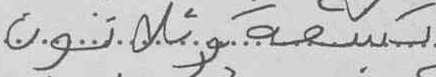 تسعة وثلاثون